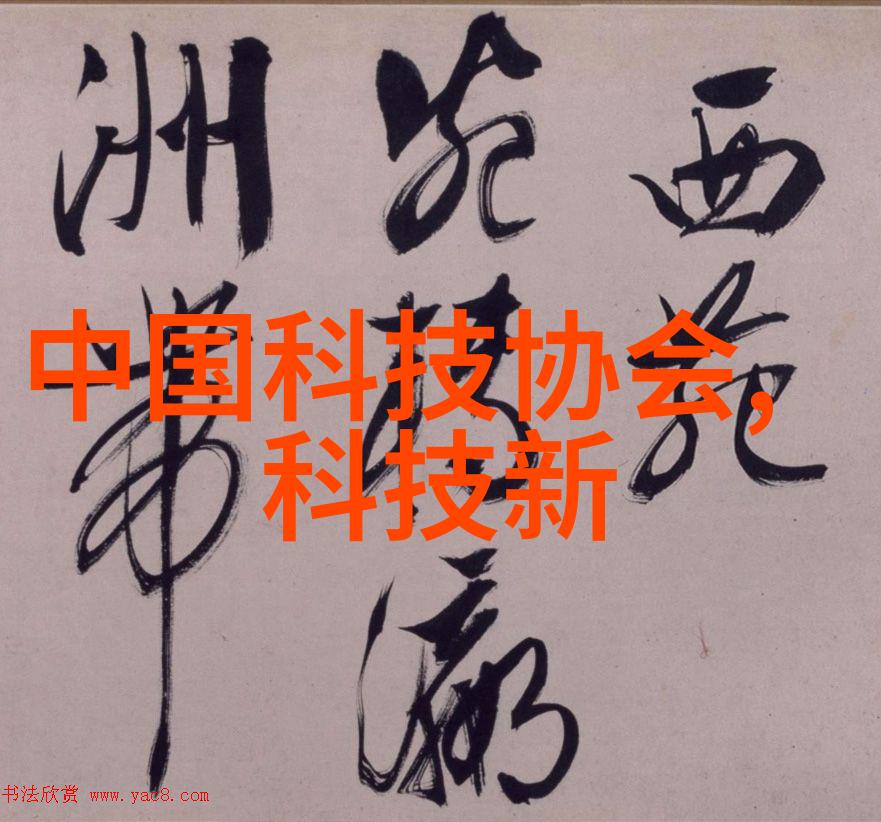 西苑
瀛
洲
中国科技协会,
科技新
书法欣赏 www.yac8.com